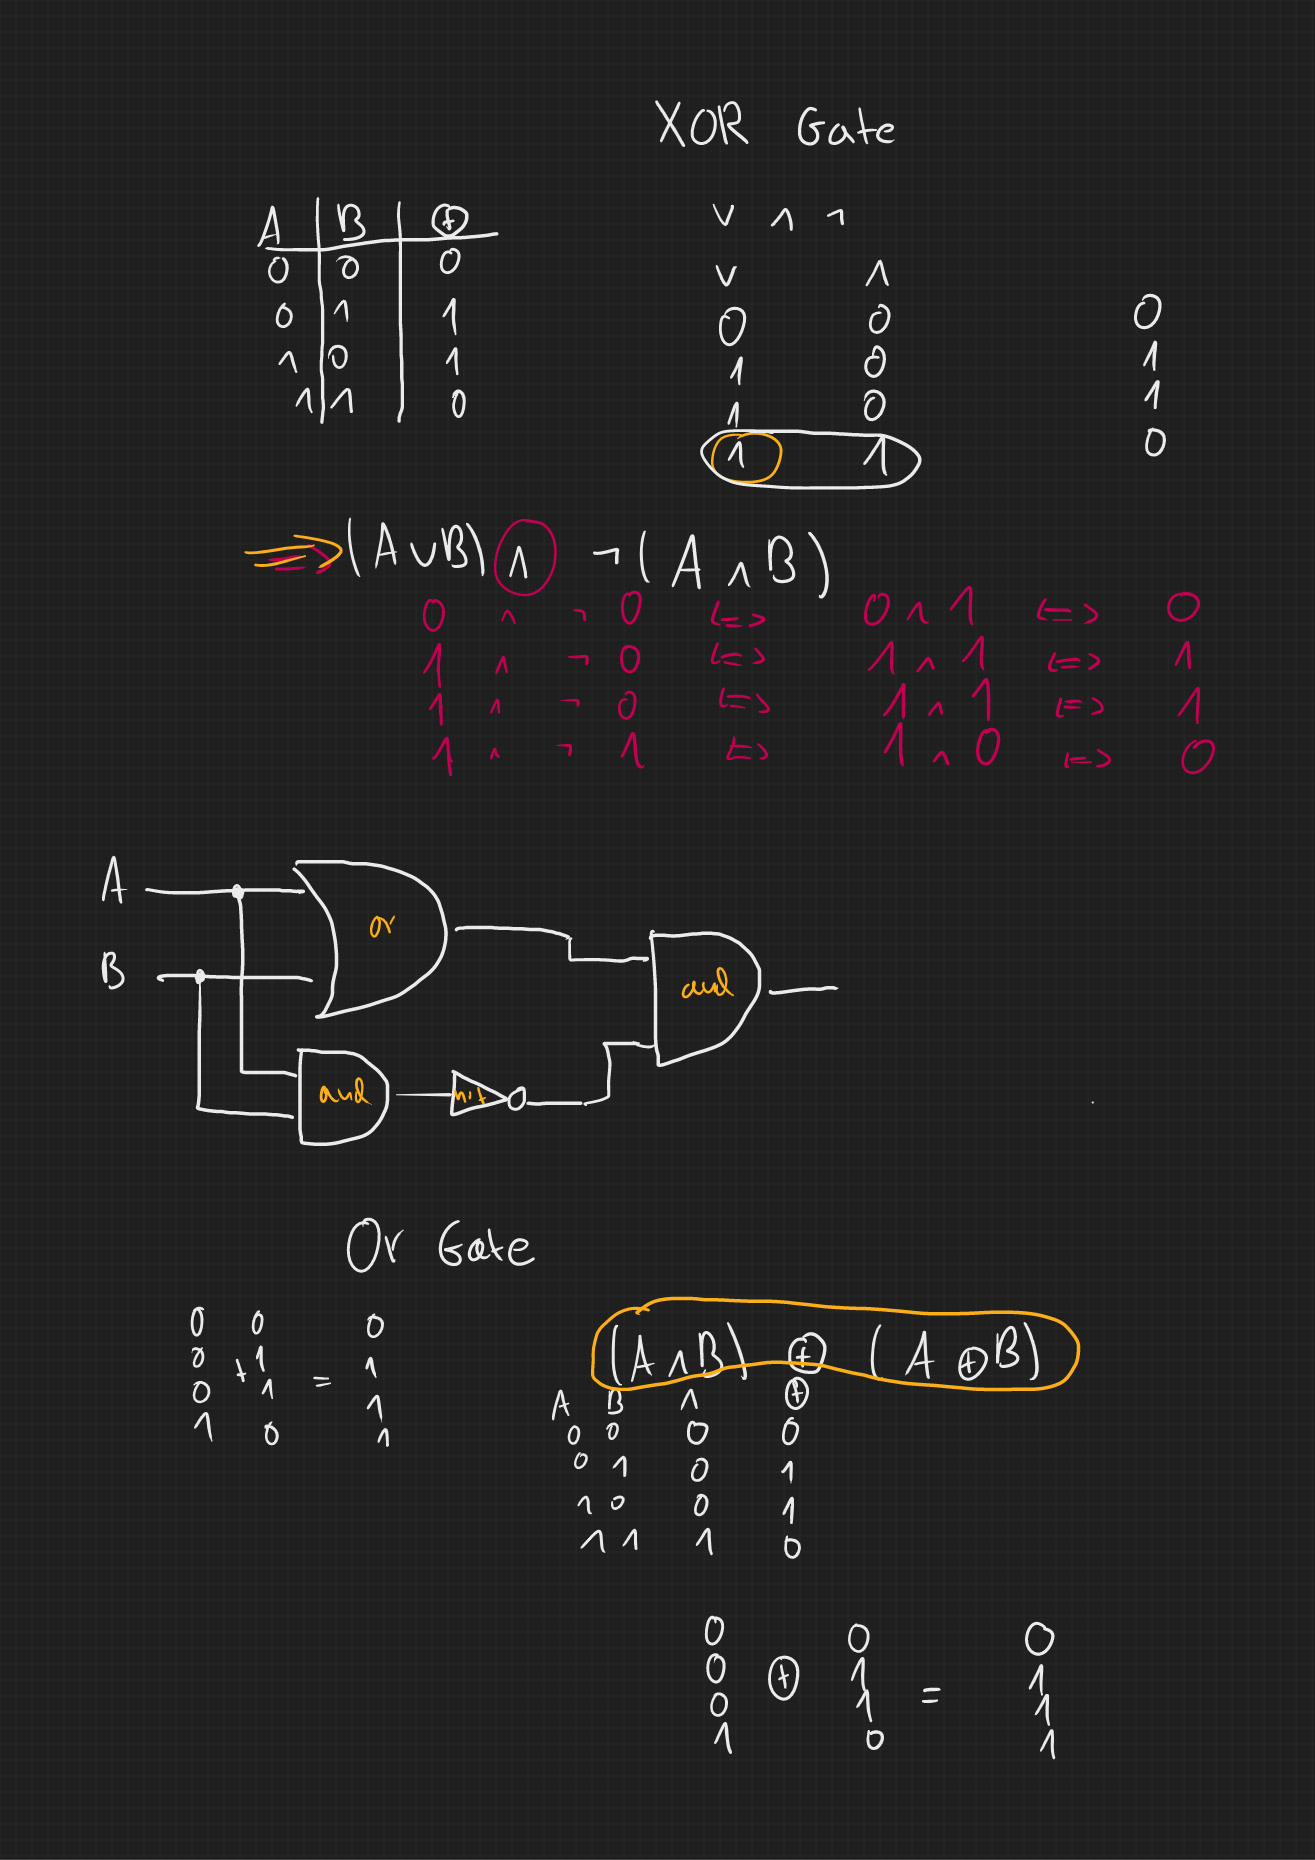 XOR Gate
A B ⊕
0 0 0
0 1 1
1 0 1
1 1 0
∨ ∧ ¬
∨ ∧
0 0 0
1 0 1
1 0 1
1 1 0
⇒ (A∪B) ∧ ¬(A ∧ B)
0 ∧ ¬ 0 <=> 0 ∧ 1 <=> 0
1 ∧ ¬ 0 <=> 1 ∧ 1 <=> 1
1 ∧ ¬ 0 <=> 1 ∧ 1 <=> 1
1 ∧ ¬ 1 <=> 1 ∧ 0 <=> 0
A
or
B
and
and
Or Gate
0 0 0
0 + 1 1
0 1 = 1
1 0 1
(A ∧ B) ⊕ (A ⊕ B)
A B ∧ ⊕
0 0 0 0
0 1 0 1
1 0 0 1
1 1 1 0
0 0 0
0 ⊕ 1 1
0 1 = 1
1 0 1